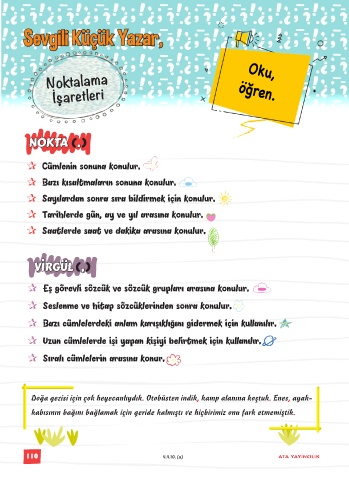 Sevgili Küçük Yazar,
Noktalama
İşaretleri
Oku,
öğren.
NOKTA (.)
Cümlenin sonuna konulur.
Bazı kısaltmaların sonuna konulur.
Sayılardan sonra sıra bildirmek için konulur.
Tarihlerde gün, ay ve yıl arasına konulur.
Saatlerde saat ve dakika arasına konulur.
VİRGÜL (,)
Eş görevli sözcük ve sözcük grupları arasına konulur.
Seslenme ve hitap sözcüklerinden sonra konulur.
Bazı cümlelerdeki anlam karışıklığını gidermek için kullanılır.
Uzun cümlelerde işi yapan kişiyi belirtmek için kullanılır.
Sıralı cümlelerin arasına konur.
Doğa gezisi için çok heyecanlıydık. Otobüsten indik, kamp alanına koştuk. Enes, ayak-
kabısının bağını bağlamak için geride kalmıştı ve hiçbirimiz onu fark etmemiştik.
110
4.4.19. (a)
ATA YAYINCILIK